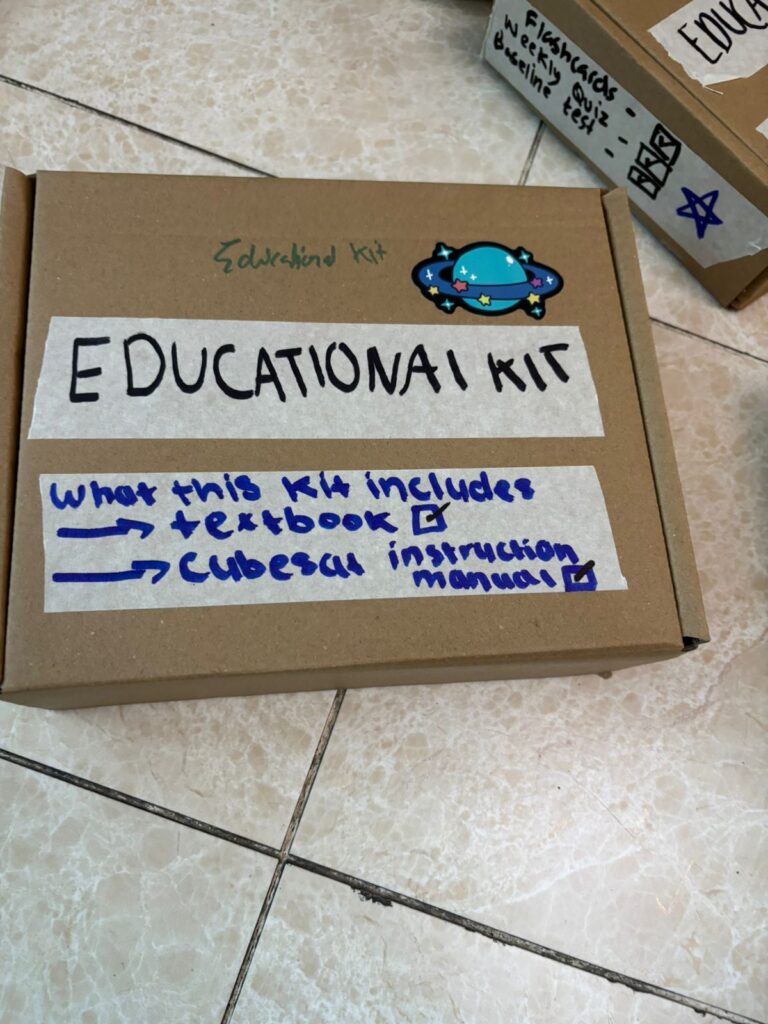 Educational Kit
EDUCATIONAl KIT
What this Kit includes
textbook
Cubesat instruction
manual
Flashcards -
Weekly Quiz -
Baseline test -